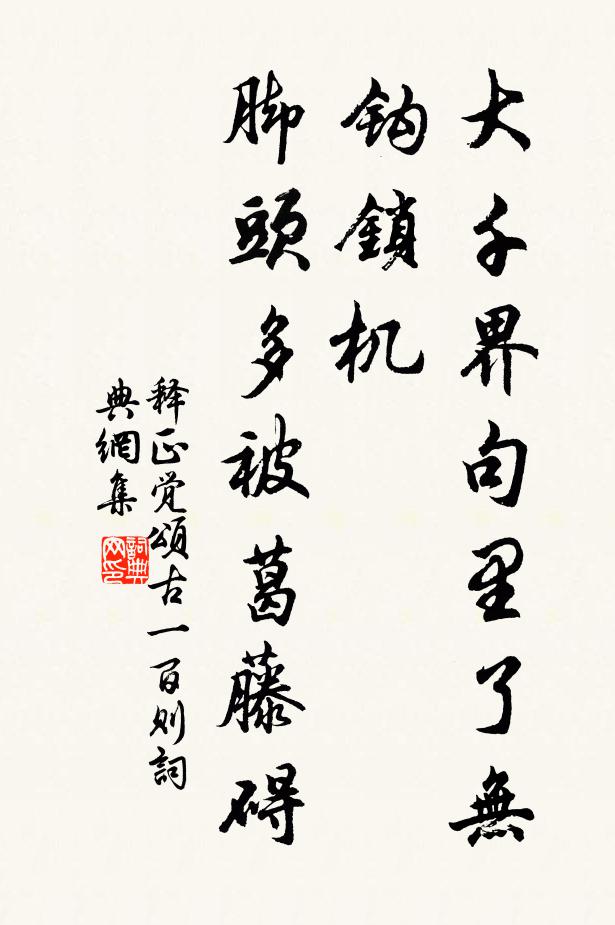 大千界句里了無
钩鎖机
脚頭多被葛藤碍
释正覚頌古一百则詞
典網集
詞典
网印